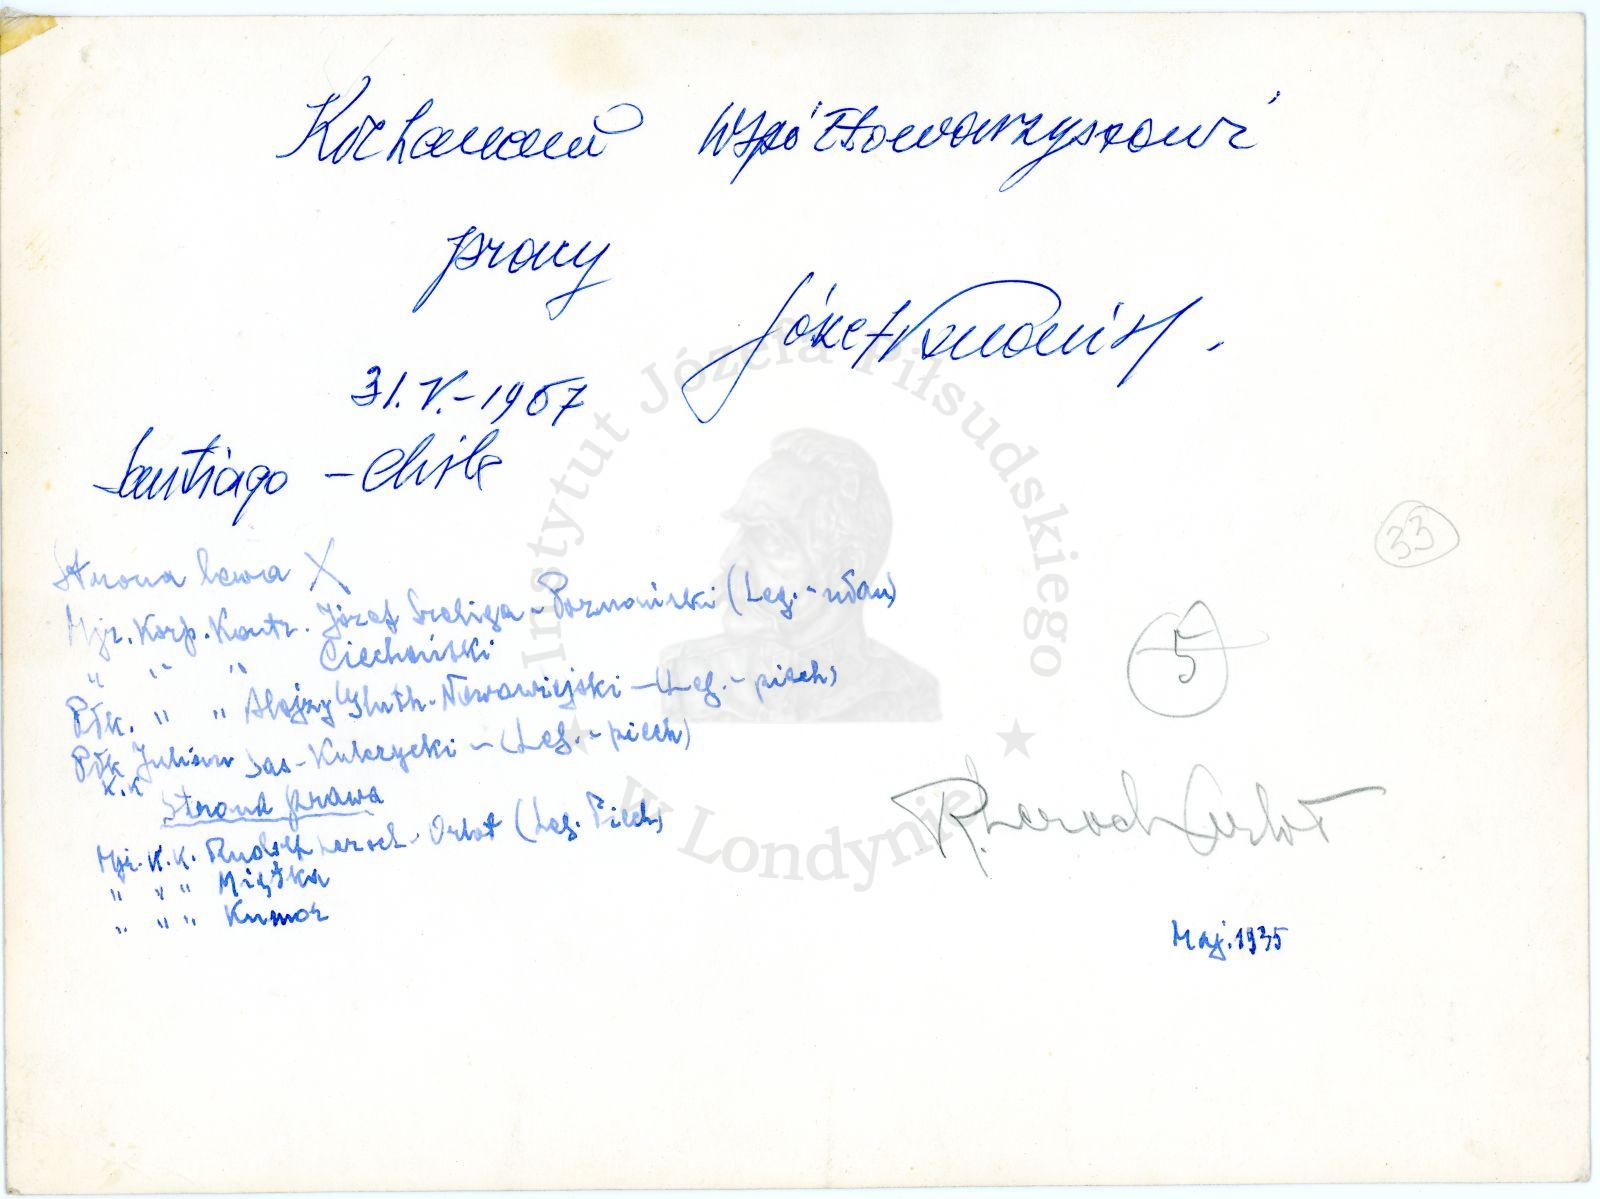 Kochanemu Współtowarzyszowi
pracy
Józef
31.V.-1967
Santiago - Chile
Strona lewa X
Mjr. Korp. Kontr. Józef Szeliga-Poznański (Leg.-ułan)
" " " Ciechoński
Płk. " " Alojzy Gluth-Nowowiejski-(Leg.-piech)
Płk Julian Sas-Kulczycki-(Leg.-piech)
K.K
Strona prawa
Mjr. K.K. Rudolf Laroch-Orlot (Leg. Piech)
" " " Miętka
" " " Kumor
33
5
R. Laroch Orlot
Maj. 1935
Instytut Józefa Piłsudskiego
w Londynie